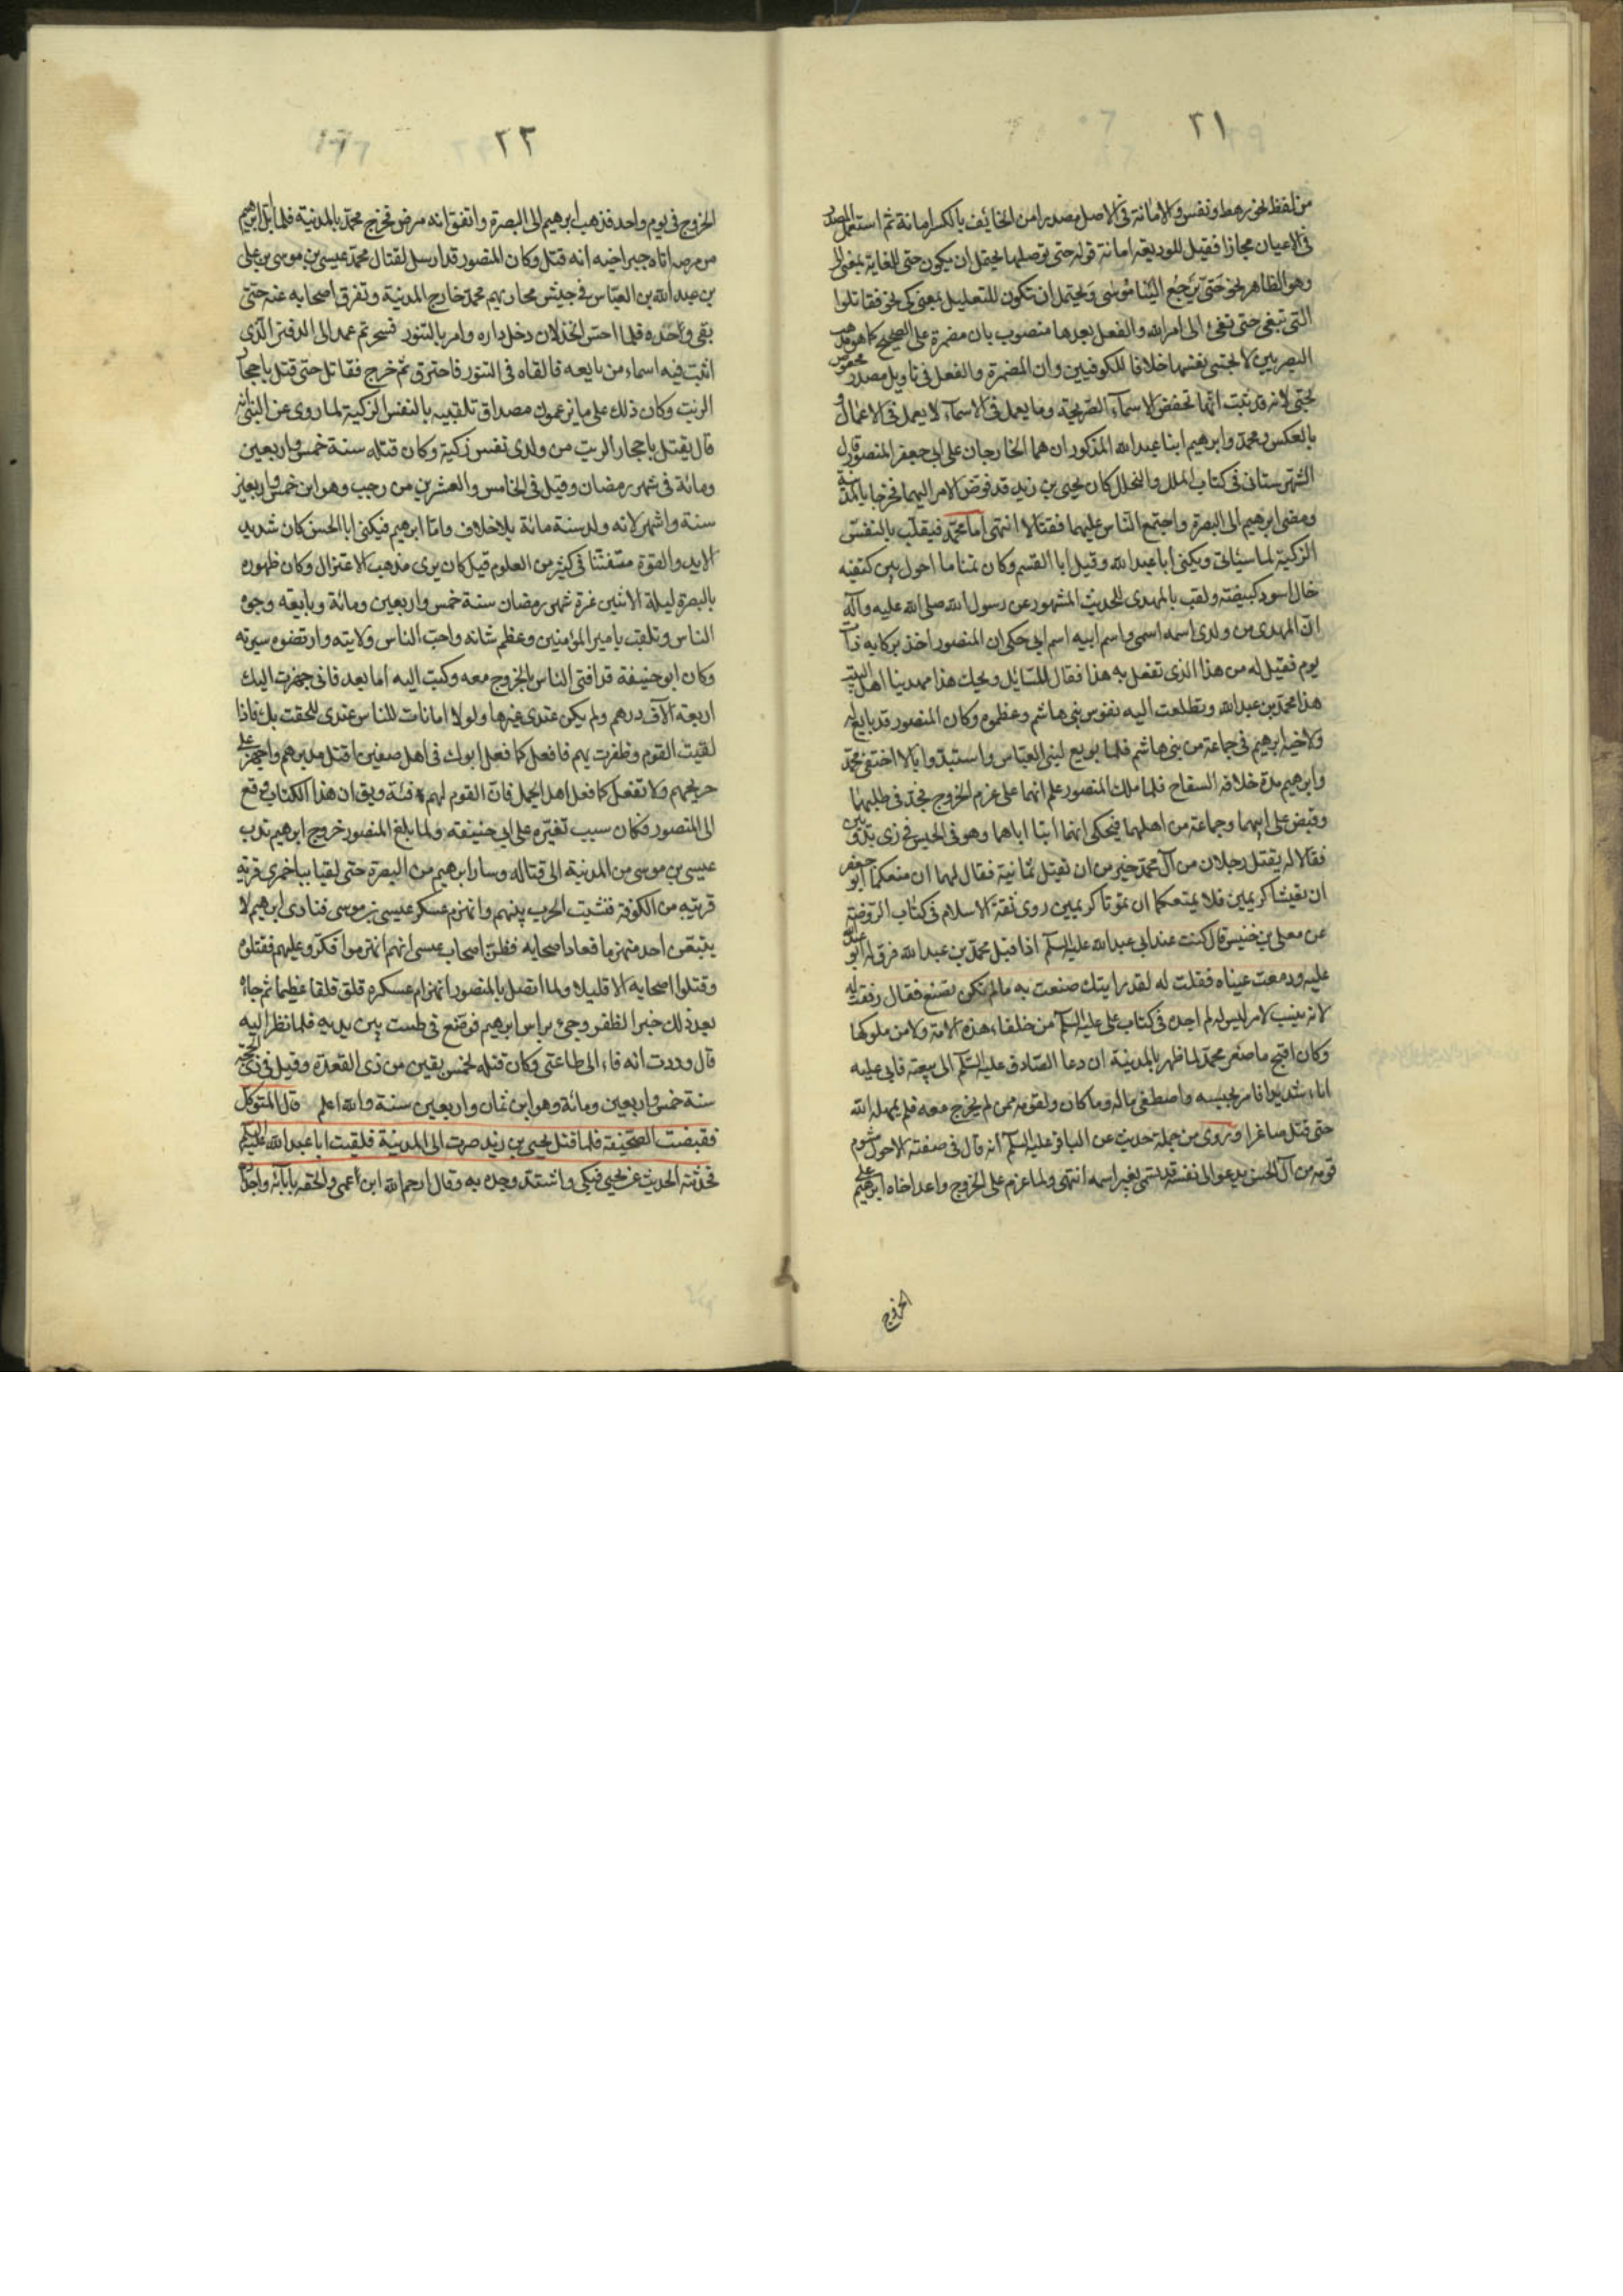 ٣١
من لفظ نحو رهط ونفس والامانة فى الاصل مصدر امن الخائف بالكسر امانة ثم استعمل المصدر
فى الاعيان مجازا فقيل للوديعة امانة قوله حتى توصلها يحتمل ان يكون حتى للغاية بمعنى الى
وهو الظاهر نحو حتى يرجع الينا موسى ويحتمل ان تكون للتعليل بمعنى كى نحو فقاتلوا
التى تبغى حتى تفىء الى امر الله والفعل بعدها منصوب بان مضمرة على الصحيح كما هو مذهب
البصريين لا بحتى نفسها خلافا للكوفيين وان المضمرة والفعل فى تاويل مصدر مخفوض
بحتى لانه قد ثبت انها تخفض الاسماء الصريحة وما يعمل فى الاسماء لا يعمل فى الافعال و
بالعكس ومحمد وابرهيم ابنا عبد الله المذكوران هما الخارجان على ابى جعفر المنصور قال
الشهرستانى فى كتاب الملل والنحل كان يحيى بن زيد قد فوض الامر اليهما فخرجا بالمدينة
ومضى ابرهيم الى البصرة واجتمع الناس عليهما فقتلا انتهى اما محمد فيلقب بالنفس
الزكية لما سيأتى ويكنى ابا عبد الله وقيل ابا القسم وكان تمتاما احول بين كتفيه
خال اسود كبيضة ولقب بالمهدى للحديث المشهور عن رسول الله صلى الله عليه وآله
ان المهدى من ولدى اسمه اسمى واسم ابيه اسم ابى حكى ان المنصور اخذ بركابه ذات
يوم فقيل له من هذا الذى تفعل به هذا فقال للسائل ويحك هذا مهدينا اهل البيت
هذا محمد بن عبد الله وتطلعت اليه نفوس بنى هاشم وعظموه وكان المنصور قد بايع له
ولاخيه ابرهيم فى جماعة من بنى هاشم فلما بويع لبنى العباس واستبدوا بالا اختفى محمد
وابرهيم مدة خلافة السفاح فلما ملك المنصور علم انهما على عزم الخروج فجد فى طلبهما
وقبض على ابيهما وجماعة من اهلهما فيحكى انهما اتيا اباهما وهو فى الحبس فى زى بدويين
فقالا له يقتل رجلان من آل محمد خير من ان يقتل ثمانية فقال لهما ان منعكما ابو جعفر
ان تعيشا كريمين فلا يمنعكما ان تموتا كريمين روى ثقة الاسلام فى كتاب الروضة
عن معلى بن خنيس قال كنت عند ابى عبد الله عليه السلم اذا قبل محمد بن عبد الله فرق له ابو عبد الله
عليه ودمعت عيناه فقلت له لقد رايتك صنعت به ما لم تكن تصنع فقال رققت له
لانه ينسب لامر ليس له لم اجده فى كتاب على عليه السلم من خلفاء هذه الامة ولا من ملوكها
وكان اقبح ما صنع محمد لما ظهر بالمدينة ان دعا الصادق عليه السلم الى بيعته فابى عليه
اباء شديدا فامر بحبسه واصطفى ماله وما كان ولقومه ممن لم يخرج معه فلم يمهله الله
حتى قتل صاغرا وروى من جملة حديث عن الباقر عليه السلم انه قال فى صفته الاحول مشوم
قومه من آل الحسن يدعو الى نفسه قد تسمى بغير اسمه انتهى ولما عزم على الخروج واعد اخاه ابرهيم على
الخروج
٣٢
الخروج فى يوم واحد فذهب ابرهيم الى البصرة واتفق انه مرض فخرج محمد بالمدينة فلما ابل ابرهيم
من مرضه اتاه خبر اخيه انه قتل وكان المنصور قد ارسل لقتال محمد عيسى بن موسى بن على
بن عبد الله بن العباس فى جيش فحاربهم محمد خارج المدينة وتفرق اصحابه عنه حتى
بقى وحده فلما احس الخذلان دخل داره وامر بالتنور فسجر ثم عمد الى الدفتر الذى
اثبت فيه اسماء من بايعه فالقاه فى التنور فاحترق ثم خرج فقاتل حتى قتل باحجار
الزيت وكان ذلك على ما يزعمون مصداق تلقيبه بالنفس الزكية لما روى عن النبى انه
قال يقتل باحجار الزيت من ولدى نفس زكية وكان قتله سنة خمس واربعين
ومائة فى شهر رمضان وقيل فى الخامس والعشرين من رجب وهو ابن خمس واربعين
سنة واشهر لانه ولد سنة مائة بلا خلاف واما ابرهيم فيكنى ابا الحسن كان شديد
الايد والقوة متفننا فى كثير من العلوم قيل كان يرى مذهب الاعتزال وكان ظهوره
بالبصرة ليلة الاثنين غرة شهر رمضان سنة خمس واربعين ومائة وبايعه وجوه
الناس وتلقب بامير المؤمنين وعظم شانه واحب الناس ولايته وارتضوه سيرته
وكان ابو حنيفة قد افتى الناس بالخروج معه وكتب اليه اما بعد فانى جهزت اليك
اربعة آلاف درهم ولم يكن عندى غيرها ولولا امانات للناس عندى للحقت بك فاذا
لقيت القوم وظفرت بهم فافعل كما فعل ابوك فى اهل صفين اقتل مدبرهم واجهز على
جريحهم ولا تفعل كما فعل اهل الجمل فان القوم لهم فئة ويق ان هذا الكتاب وقع
الى المنصور فكان سبب تغيره على ابى حنيفة ولما بلغ المنصور خروج ابرهيم ندب
عيسى بن موسى من المدينة الى قتاله وسار ابرهيم من البصرة حتى لقيا بباخمرى قرية
قريبة من الكوفة فنشبت الحرب بينهم وانهزم عسكر عيسى بن موسى فنادى ابرهيم لا
يتبعن احد منهزما فعاد اصحابه فظن اصحاب عيسى انهم انهزموا فكروا عليهم فقتلوه
وقتلوا اصحابه الا قليلا ولما اتصل بالمنصور انهزام عسكره قلق قلقا عظيما ثم جاءه
بعد ذلك خبر الظفر وجىء براس ابرهيم فوضع فى طست بين يديه فلما نظر اليه
قال وددت انه فاء الى طاعتى وكان قتله لخمس بقين من ذى القعدة وقيل فى ذى الحجة
سنة خمس واربعين ومائة وهو ابن ثمان واربعين سنة والله اعلم قال المتوكل
فقبضت الصحيفة فلما قتل يحيى بن زيد صرت الى المدينة فلقيت ابا عبد الله عليه السلم
فحدثته الحديث عن يحيى فبكى واشتد وجده به وقال رحم الله ابن عمى والحقه بابائه واجداده